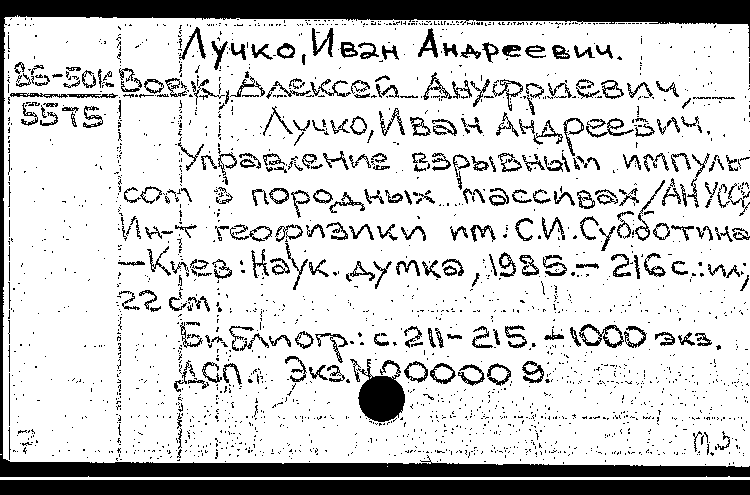 Лучко, Иван Андреевич.
86-50к Вовк, Алексей Ануфриевич,
5575 Лучко, Иван Андреевич.
Управление взрывным импуль-
сом в породных массивах / АН УССР
Ин-т геофизики им. С.И. Субботина
—Киев: Наук. думка, 1985.— 216 с.: ил;
22 см.
Библиогр.: с. 211-215. —1000 экз.
ДСП. Экз. N 000009.